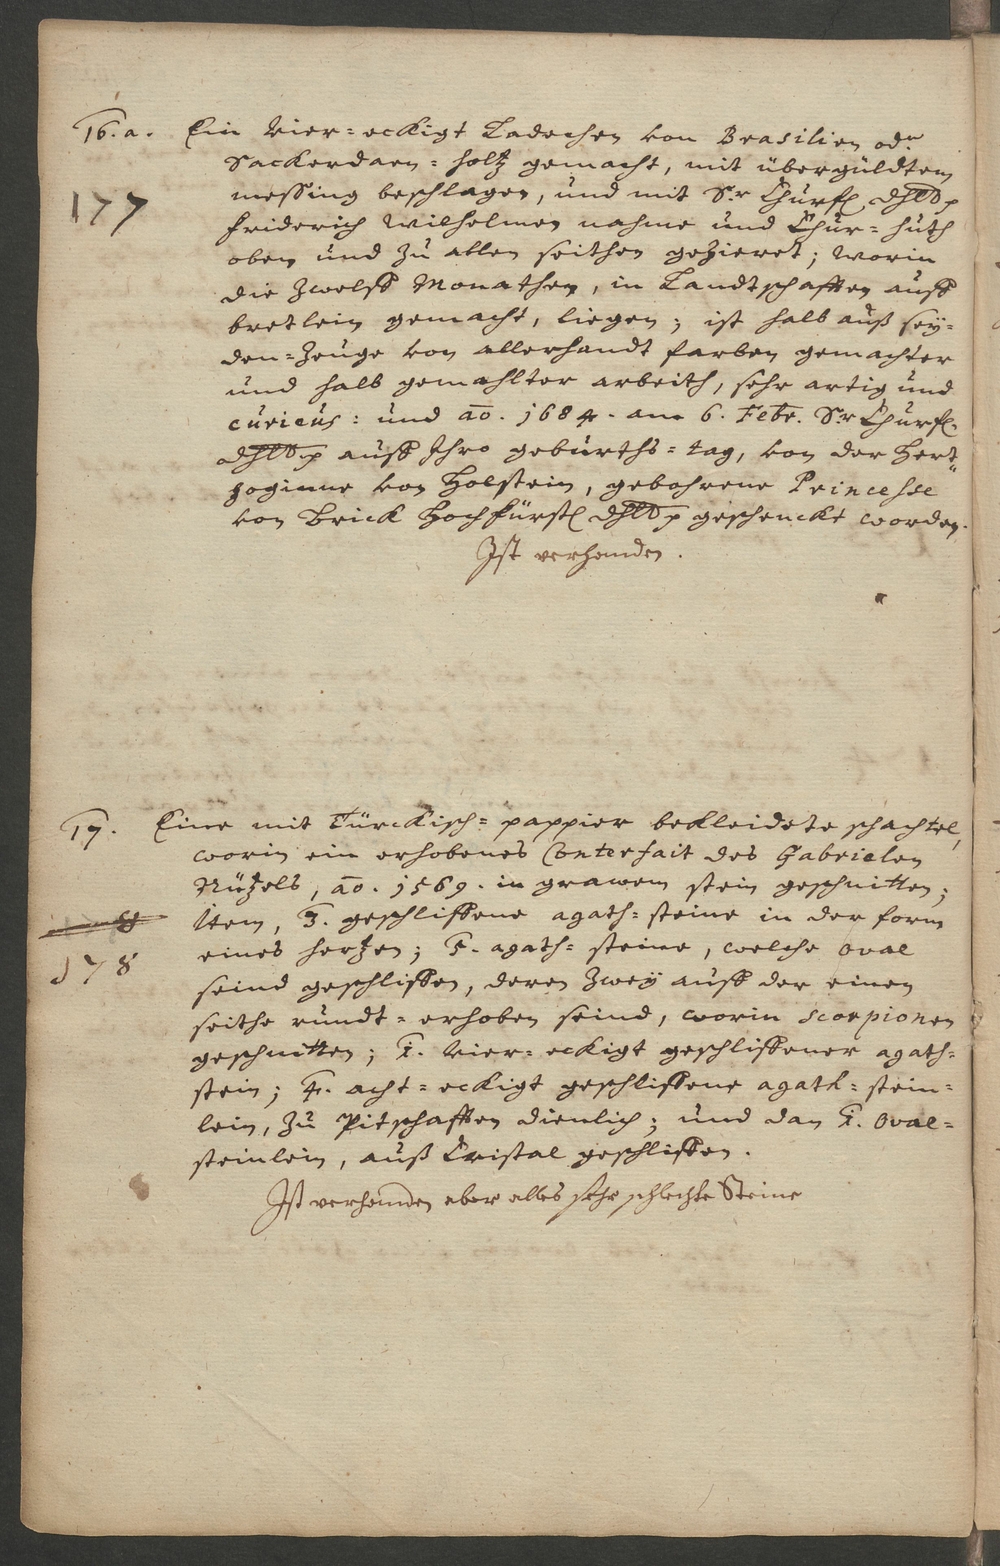 16.a. Ein vier=eckigt Ladechen von Brasilien odr
Sackerdaen=holtz gemacht, mit übergüldtem
177
messing beschlagen, und mit Sr. Churfl. Dhlt.
Friderich Wilhelmen nahme und Chur=huth
oben und zu allen seithen gezieret; worin
die zwelff Monathen, in Landtschafften auff
bretlein gemacht, liegen; ist halb auß sey=
den=zeuge von allerhandt farben gemachter
und halb gemahlter arbeith, sehr artig und
curieus: und ao. 1684. am 6. Febr. Sr Churfl.
Dhlt. auff Ihro geburths=tag, von der Hert=
zoginne von Holstein, gebohrene Princesse
von Brieck Hochfürstl Dhlt. geschenckt worden.
Ist verhanden.
17. Eine mit Türckisch=pappier bekleidete schachtel,
worin ein erhobenes Conterfait des Gabrielen
Nützels, ao. 1569. in grawem stein geschnitten;
Item, 3. geschliffene agath=steine in der form
178
eines hertzen; 5. agath=steine, welche oval
seind geschliffen, deren zwey auff der einen
seithe rundt=erhoben seind, worin scorpionen
geschnitten; 1. vier=eckigt geschliffener agath=
stein; 4. acht=eckigt geschliffene agath=stein=
lein, zu Pitschafften dienlich; und dan 1. oval=
steinlein, auß Cristal geschliffen.
Ist verhanden aber alles sehr schlechte Steine